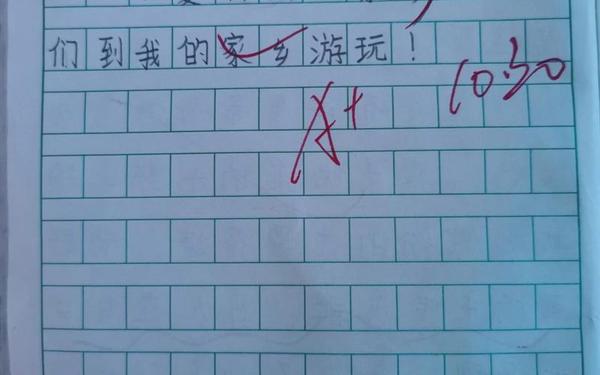 们到我的家乡游玩！
A+
10.30